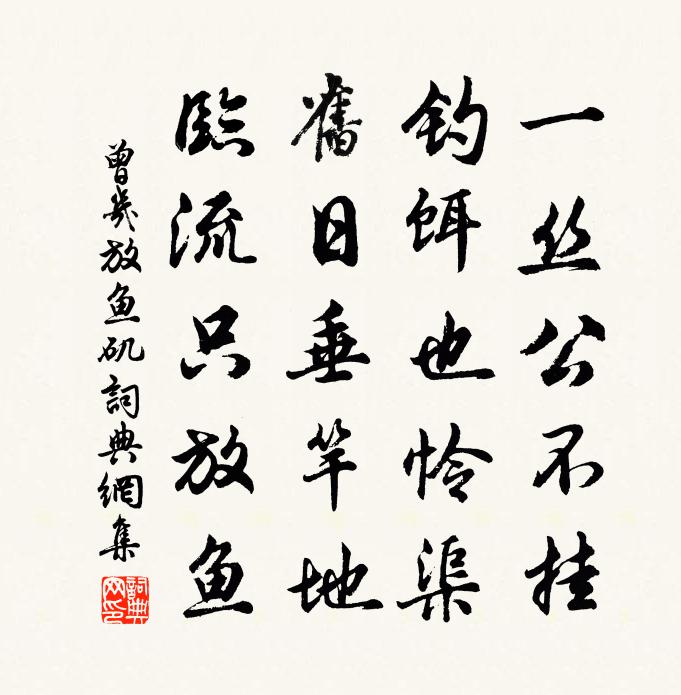 一丝公不挂
钓饵也怜渠
舊日垂竿地
臨流只放鱼
曾幾放鱼矶詞典網集
詞典網印